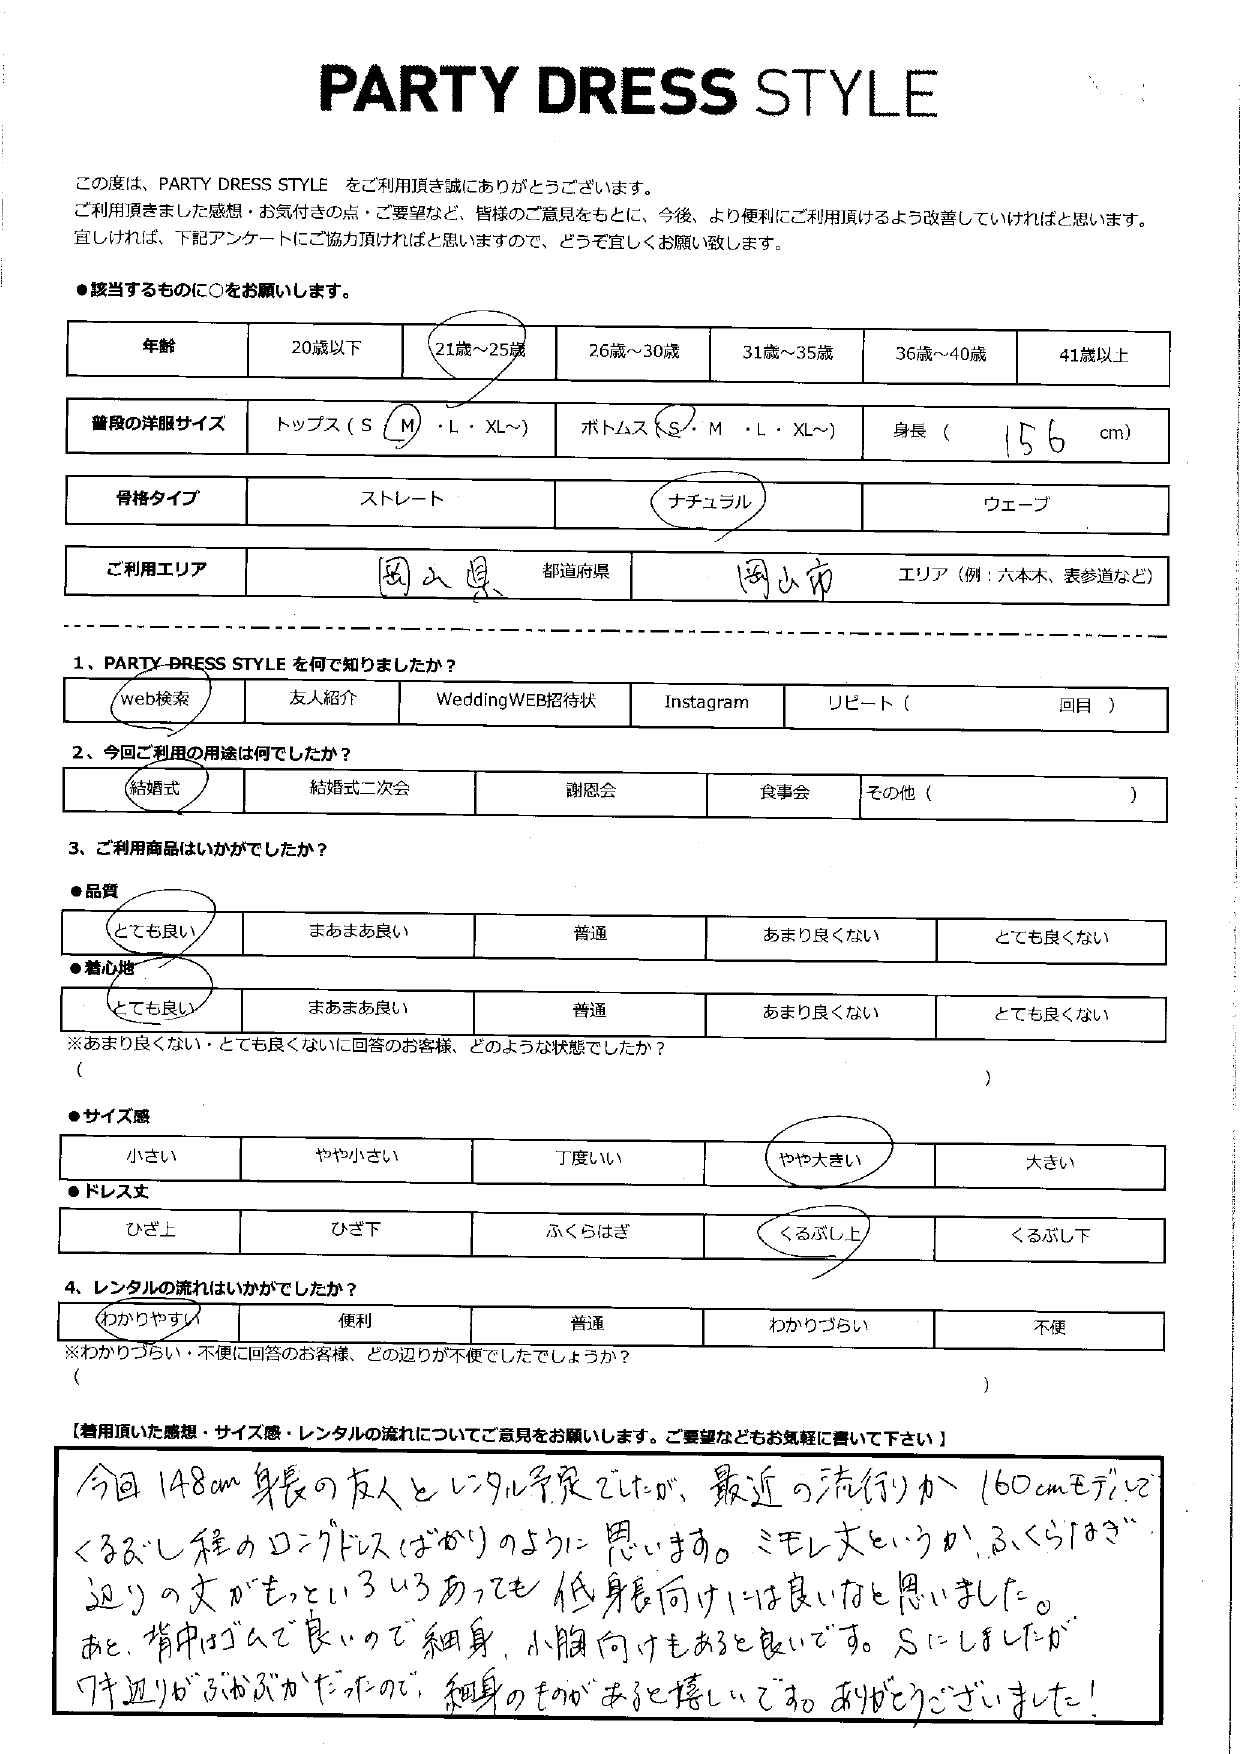 PARTY DRESS STYLE
この度は、PARTY DRESS STYLE をご利用頂き誠にありがとうございます。
ご利用頂きました感想・お気付きの点・ご要望など、皆様のご意見をもとに、今後、より便利にご利用頂けるよう改善していければと思います。
宜しければ、下記アンケートにご協力頂ければと思いますので、どうぞ宜しくお願い致します。
●該当するものに○をお願いします。
年齢 20歳以下 21歳～25歳 26歳～30歳 31歳～35歳 36歳～40歳 41歳以上
普段の洋服サイズ トップス ( S ・ M ・ L ・ XL～) ボトムス ( S ・ M ・ L ・ XL～) 身長 ( 156 cm)
骨格タイプ ストレート ナチュラル ウェーブ
ご利用エリア 岡山県 都道府県 岡山市 エリア（例：六本木、表参道など）
1、PARTY DRESS STYLE を何で知りましたか？
web検索 友人紹介 WeddingWEB招待状 Instagram リピート（ 回目 ）
2、今回ご利用の用途は何でしたか？
結婚式 結婚式二次会 謝恩会 食事会 その他（ ）
3、ご利用商品はいかがでしたか？
●品質
とても良い まあまあ良い 普通 あまり良くない とても良くない
●着心地
とても良い まあまあ良い 普通 あまり良くない とても良くない
※あまり良くない・とても良くないに回答のお客様、どのような状態でしたか？
（ ）
●サイズ感
小さい やや小さい 丁度いい やや大きい 大きい
●ドレス丈
ひざ上 ひざ下 ふくらはぎ くるぶし上 くるぶし下
4、レンタルの流れはいかがでしたか？
わかりやすい 便利 普通 わかりづらい 不便
※わかりづらい・不便に回答のお客様、どの辺りが不便でしたでしょうか？
（ ）
【着用頂いた感想・サイズ感・レンタルの流れについてご意見をお願いします。ご要望などもお気軽に書いて下さい】
今回148cm身長の友人とレンタル予定でしたが、最近の流行りか160cmモデルで
くるぶし程のロングドレスばかりのように思います。ミモレ丈というか、ふくらはぎ
辺りの丈がもっといろいろあっても低身長向けには良いなと思いました。
あと、背中はゴムで良いので細身、小胸向けもあると良いです。Sにしましたが
ワキ辺りがぶかぶかだったので、細身のものがあると嬉しいです。ありがとうございました！